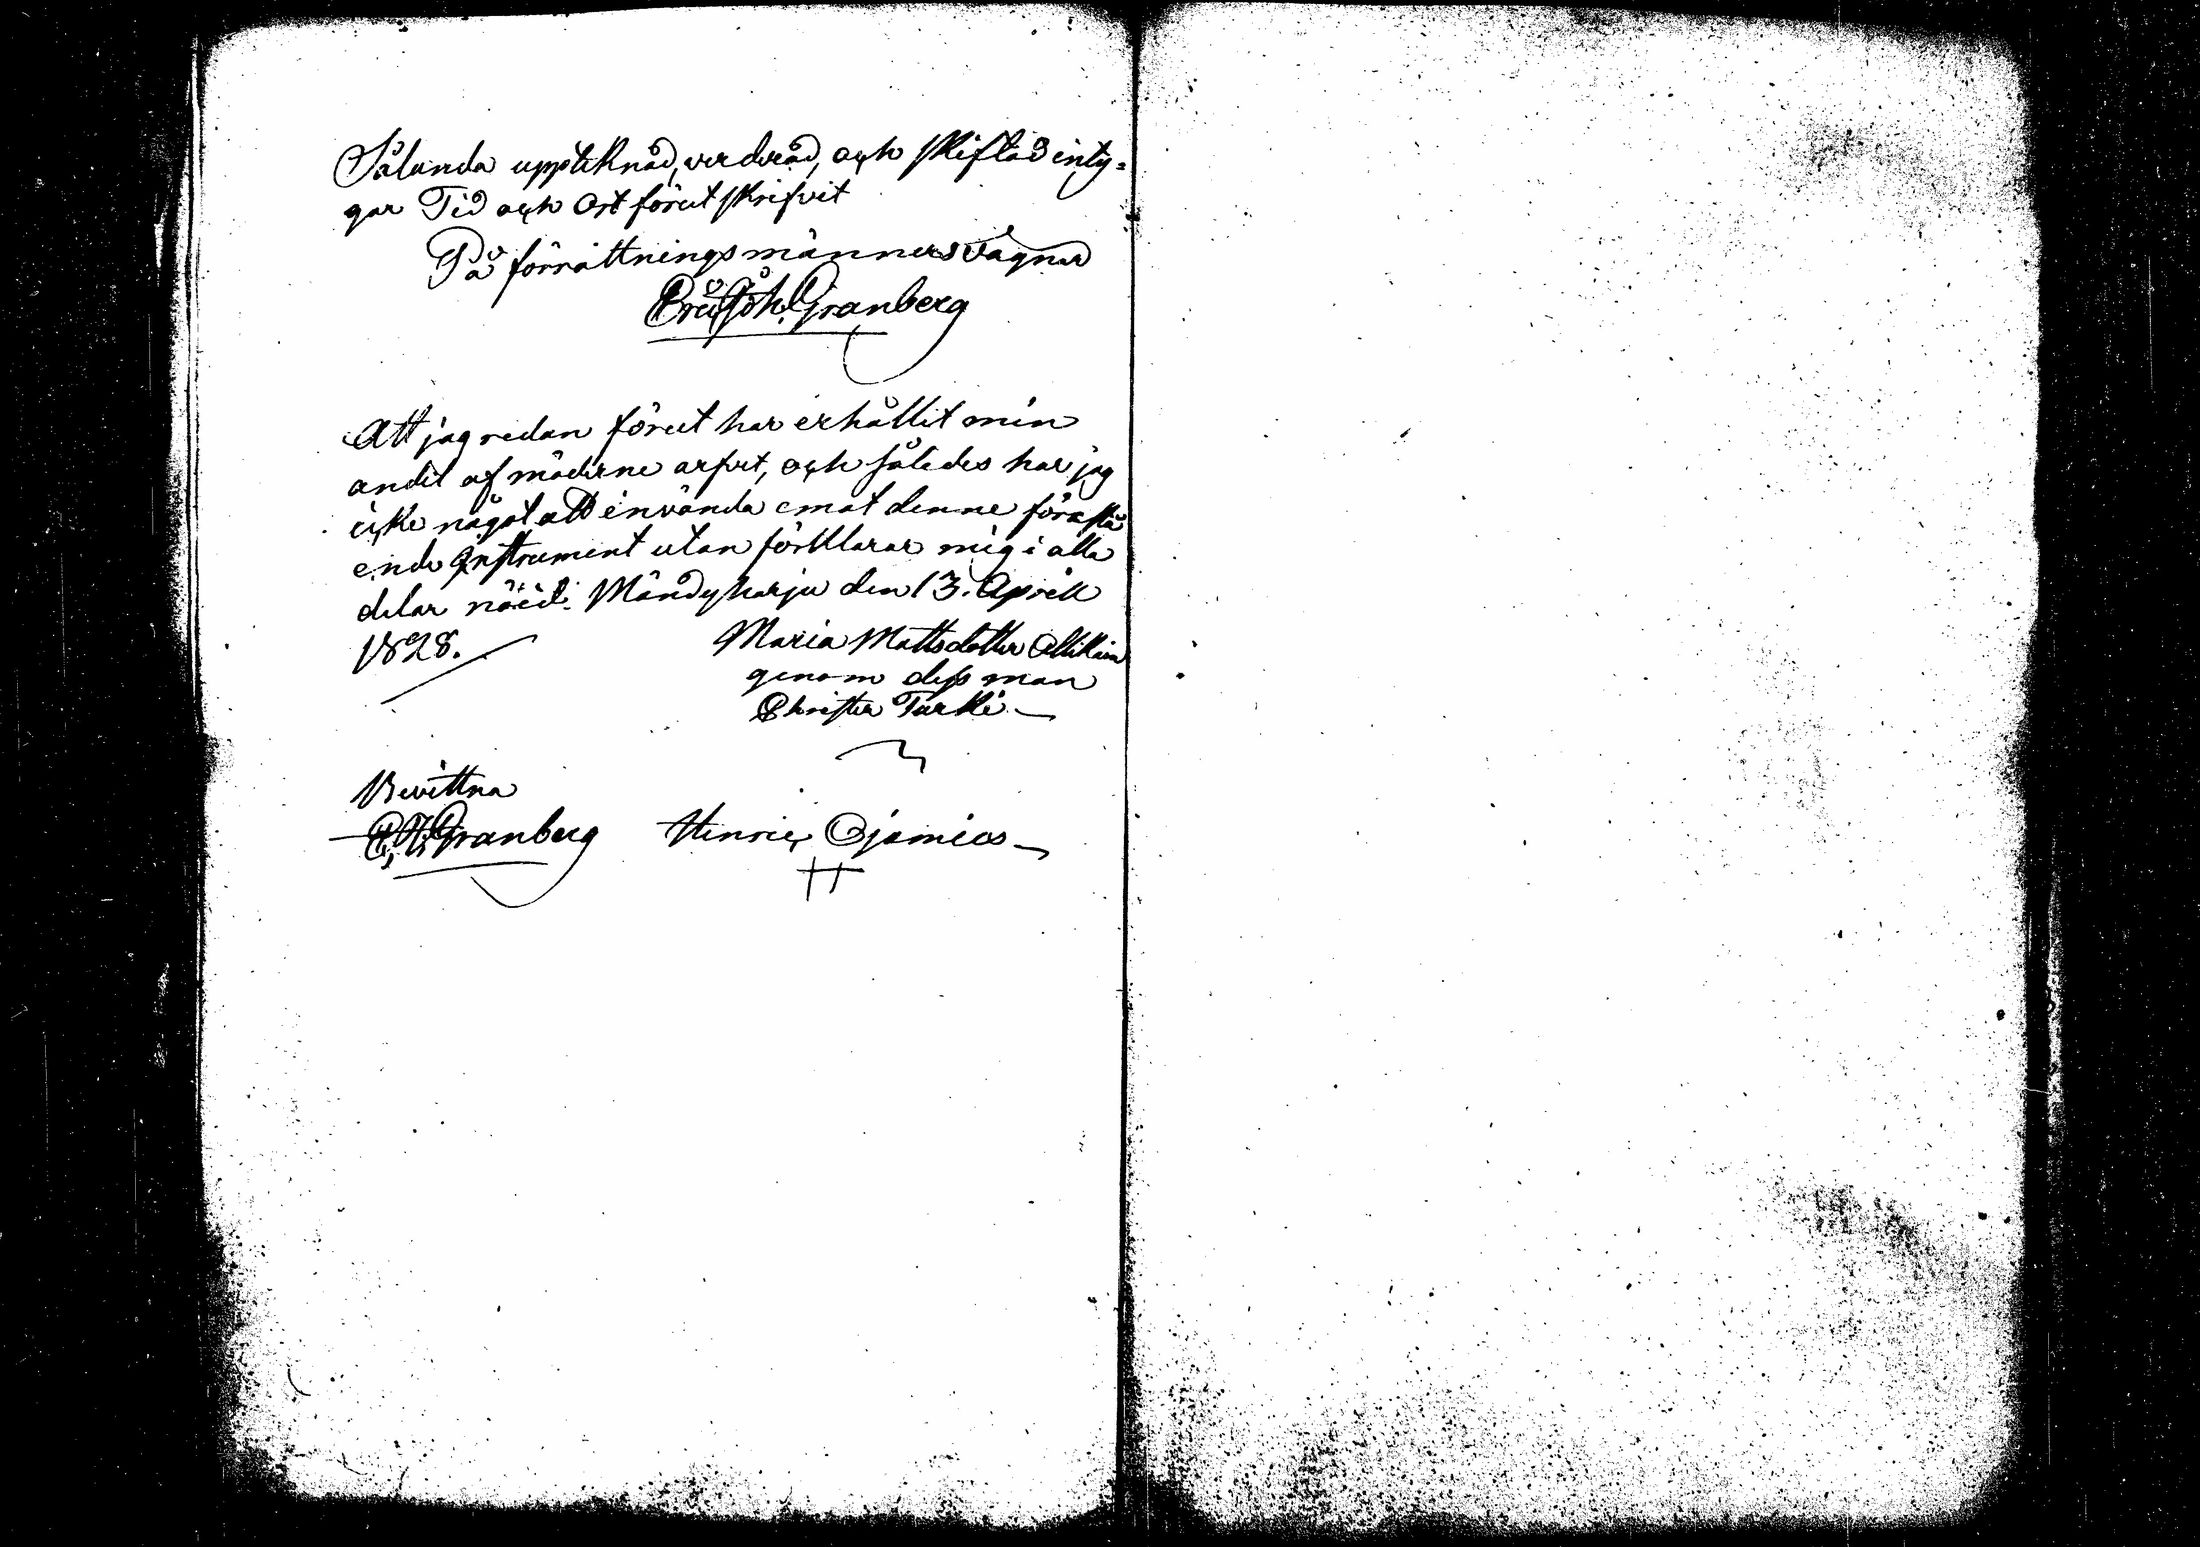 Sålunda uppteknad, verderad, och skiftad inty=
gar Tid och Ort förut skrifvit
På förrättningsmänners vägnar
Joh. Granberg
Att jag redan förut har erhållit min
andel af möderne arfvet, och således har jag
icke något att invända emot denne förestå
ende Instrument utan förklarar mig i alla
delar nöijd. Mändyharju den 13. Aprill
1828.
Maria Mattsdotter
genom dess man
Christer Tarki
Bevittna
Granberg Henric Ojamies